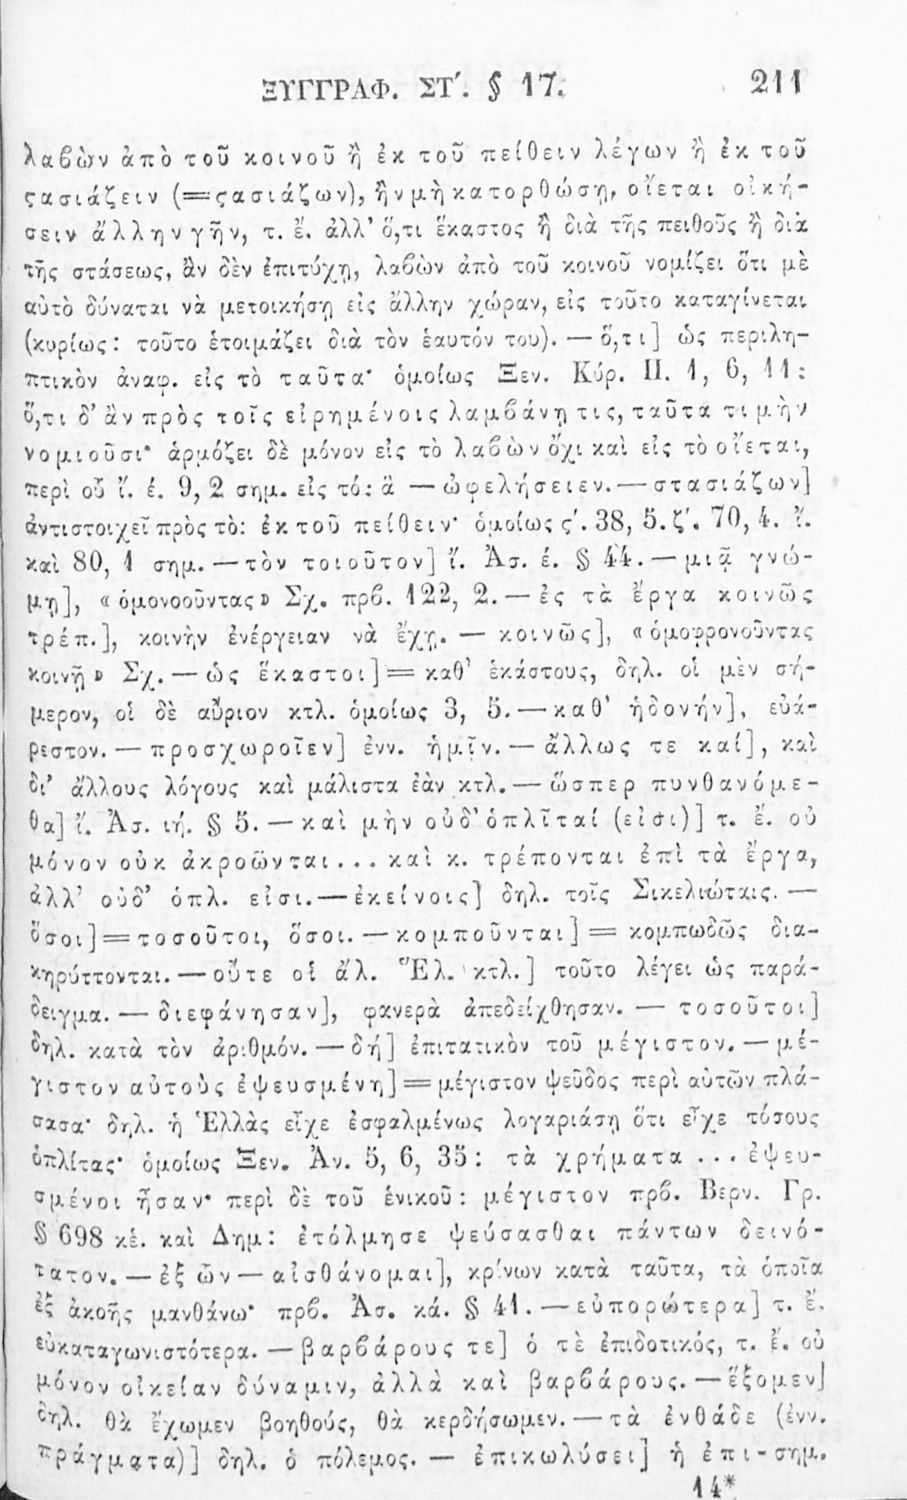 ΞΥΓΓΡΑΦ. ΣΤʹ. § 17. 211
λαβὼν ἀπὸ τοῦ κοινοῦ ἢ ἐκ τοῦ πείθειν λέγων ἢ ἐκ τοῦ
ϛασιάζειν (=ϛασιάζων), ἢν μὴ κατορθώσῃ, οἴεται οἰκή-
σειν ἄλλην γῆν, τ. ἔ. ἀλλ' ὅ,τι ἕκαστος ἢ διὰ τῆς πειθοῦς ἢ διὰ
τῆς στάσεως, ἂν δὲν ἐπιτύχῃ, λαβὼν ἀπὸ τοῦ κοινοῦ νομίζει ὅτι μὲ
αὐτὸ δύναται νὰ μετοικήσῃ εἰς ἄλλην χώραν, εἰς τοῦτο καταγίνεται
(κυρίως: τοῦτο ἑτοιμάζει διὰ τὸν ἑαυτόν του). — ὅ,τι] ὡς περιλη-
πτικὸν ἀναφ. εἰς τὸ ταῦτα· ὁμοίως Ξεν. Κύρ. II. 1, 6, 11:
ὅ,τι δ' ἂν πρὸς τοῖς εἰρημένοις λαμβάνῃ τις, ταῦτα τιμὴν
νομιοῦσι· ἁρμόζει δὲ μόνον εἰς τὸ λαβὼν ὄχι καὶ εἰς τὸ οἴεται,
περὶ οὗ ἴ. ἐ. 9, 2 σημ. εἰς τό: ἃ — ὠφελήσειεν. — στασιάζων]
ἀντιστοιχεῖ πρὸς τὸ: ἐκ τοῦ πείθειν· ὁμοίως ϛʹ. 38, 5. ζʹ. 70, 4. ἴ.
καὶ 80, 1 σημ. — τὸν τοιοῦτον] ἴ. Ἀσ. έ. § 44. — μιᾷ γνώ-
μῃ], «ὁμονοοῦντας» Σχ. πρβ. 122, 2. — ἐς τὰ ἔργα κοινῶς
τρέπ.], κοινὴν ἐνέργειαν νὰ ἔχῃ. — κοινῶς], «ὁμοφρονοῦντας
κοινῇ» Σχ. — ὡς ἕκαστοι] = καθ' ἑκάστους, δηλ. οἱ μὲν σή-
μερον, οἱ δὲ αὔριον κτλ. ὁμοίως 3, 5. — καθ' ἡδονήν], εὐά-
ρεστον. — προσχωροῖεν] ἐνν. ἡμῖν. — ἄλλως τε καί], καὶ
δι' ἄλλους λόγους καὶ μάλιστα ἐὰν κτλ. — ὥσπερ πυνθανόμε-
θα] ἴ. Ἀσ. ιή. § 5. — καὶ μὴν οὐδ' ὁπλῖταί (εἰσι)] τ. ἔ. οὐ
μόνον οὐκ ἀκροῶνται... καὶ κ. τρέπονται ἐπὶ τὰ ἔργα,
ἀλλ' οὐδ' ὁπλ. εἰσι. — ἐκείνοις] δηλ. τοῖς Σικελιώταις. —
ὅσοι] = τοσοῦτοι, ὅσοι. — κομποῦνται] = κομπωδῶς δια-
κηρύττονται. — οὔτε οἱ ἄλ. Ἕλ. κτλ.] τοῦτο λέγει ὡς παρά-
δειγμα. — διεφάνησαν], φανερὰ ἀπεδείχθησαν. — τοσοῦτοι]
δηλ. κατὰ τὸν ἀριθμόν. — δή] ἐπιτατικὸν τοῦ μέγιστον. — μέ-
γιστον αὐτοὺς ἐψευσμένη] = μέγιστον ψεῦδος περὶ αὐτῶν πλά-
σασα· δηλ. ἡ Ἑλλὰς εἶχε ἐσφαλμένως λογαριάσῃ ὅτι εἶχε τόσους
ὁπλίτας· ὁμοίως Ξεν. Ἀν. 5, 6, 35: τὰ χρήματα ... ἐψευ-
σμένοι ἦσαν· περὶ δὲ τοῦ ἑνικοῦ: μέγιστον πρβ. Βερν. Γρ.
§ 698 κἑ. καὶ Δημ: ἐτόλμησε ψεύσασθαι πάντων δεινό-
τατον. — ἐξ ὧν — αἰσθάνομαι], κρίνων κατὰ ταῦτα, τὰ ὁποῖα
ἐξ ἀκοῆς μανθάνω· πρβ. Ἀσ. κά. § 41. — εὐπορώτερα] τ. ἔ.
εὐκαταγωνιστότερα. — βαρβάρους τε] ὁ τὲ ἐπιδοτικός, τ. ἔ. οὐ
μόνον οἰκείαν δύναμιν, ἀλλὰ καὶ βαρβάρους. — ἕξομεν]
δηλ. θὰ ἔχωμεν βοηθούς, θὰ κερδήσωμεν. — τὰ ἐνθάδε (ἐνν.
πράγματα)] δηλ. ὁ πόλεμος. — ἐπικωλύσει] ἡ ἐπι-σημ.
14*